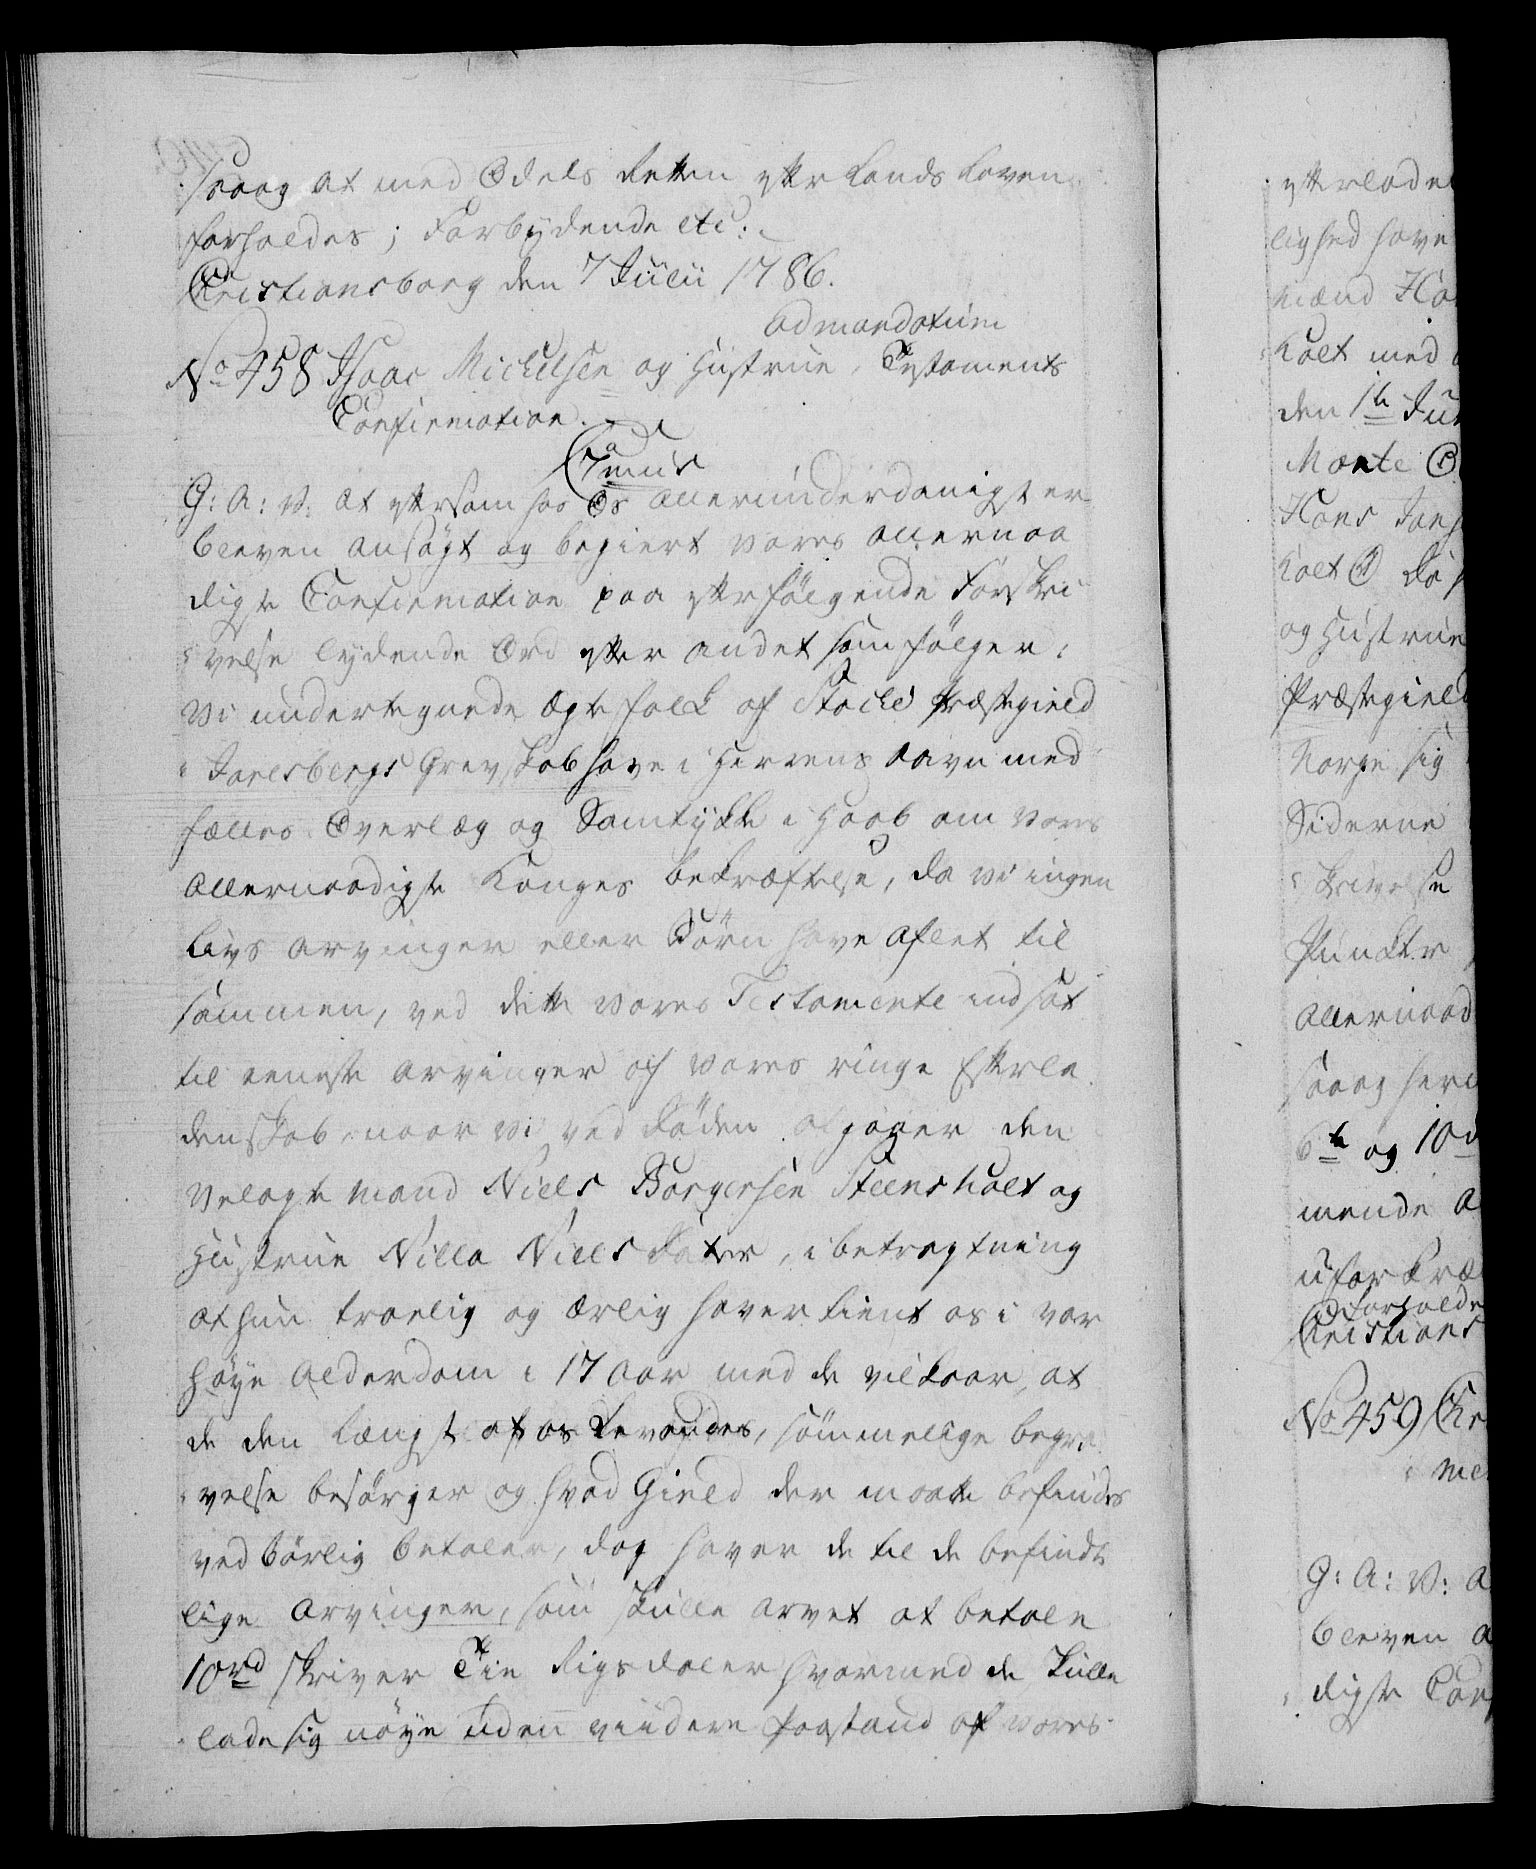 saaog at med Odels Retten efter Lands Loven
forholdes; Forbydende etc:
Christiansborg den 7 Julii 1786.
Ad mandatum
No 458 Isaac Michelsen og Hustrue, Testaments
Confirmation.
C7mus
G: A: V: at eftersom hos Os allerunderdanigst er
bleven ansøgt og begiert vores allernaa
digste Confirmation paa efterfølgende Forskri
velse lydende Ord efter andet som følger:
Vi undertegnede Ægtefolk af Stocke Præstegield
i Jarlsbergs Grevskab have i Herrens Navn med
fælles Overlæg og Samtykke i Haab om vores
allernaadigste Konges bekræftelse, da vi ingen
Livs arvinger eller Børn have aflet til
sammen, ved dette vores Testamente indsat
til eeneste arvinger af vores ringe Efterla
denskab, naar vi ved Døden afgaaer den
velagte Mand Niels Borgersen Steensholt og
Hustrue Nilla Niels Datter, i betragtning
at hun troelig og ærlig haver tient os i vor
høye Alderdom i 17 Aar med de vilkaar, at
de den længst af os Levendes, sømmelige begra
velse besørger og hvad Gield der maatte befindes
ved børlig betaler, dog haver de til de befindt
lige Arvinger, som skulle arvet at betale
10rd skriver Tie Rigsdaler hvormed de skulle
lade sig nøye uden viidere paastand af vores
efterlade
lighed have
mand Ha
holt med
den 1te Ju
Mante
Hans Jens
holt
og Hustrue
Præstegield
Norge sig
Siderne
skrivelse
Puncter
allernaad
saaog her
6te og 10d
mende a
uforkræ
forholde
Christians
No 459
G: A: V: a
bleven a
digste Con